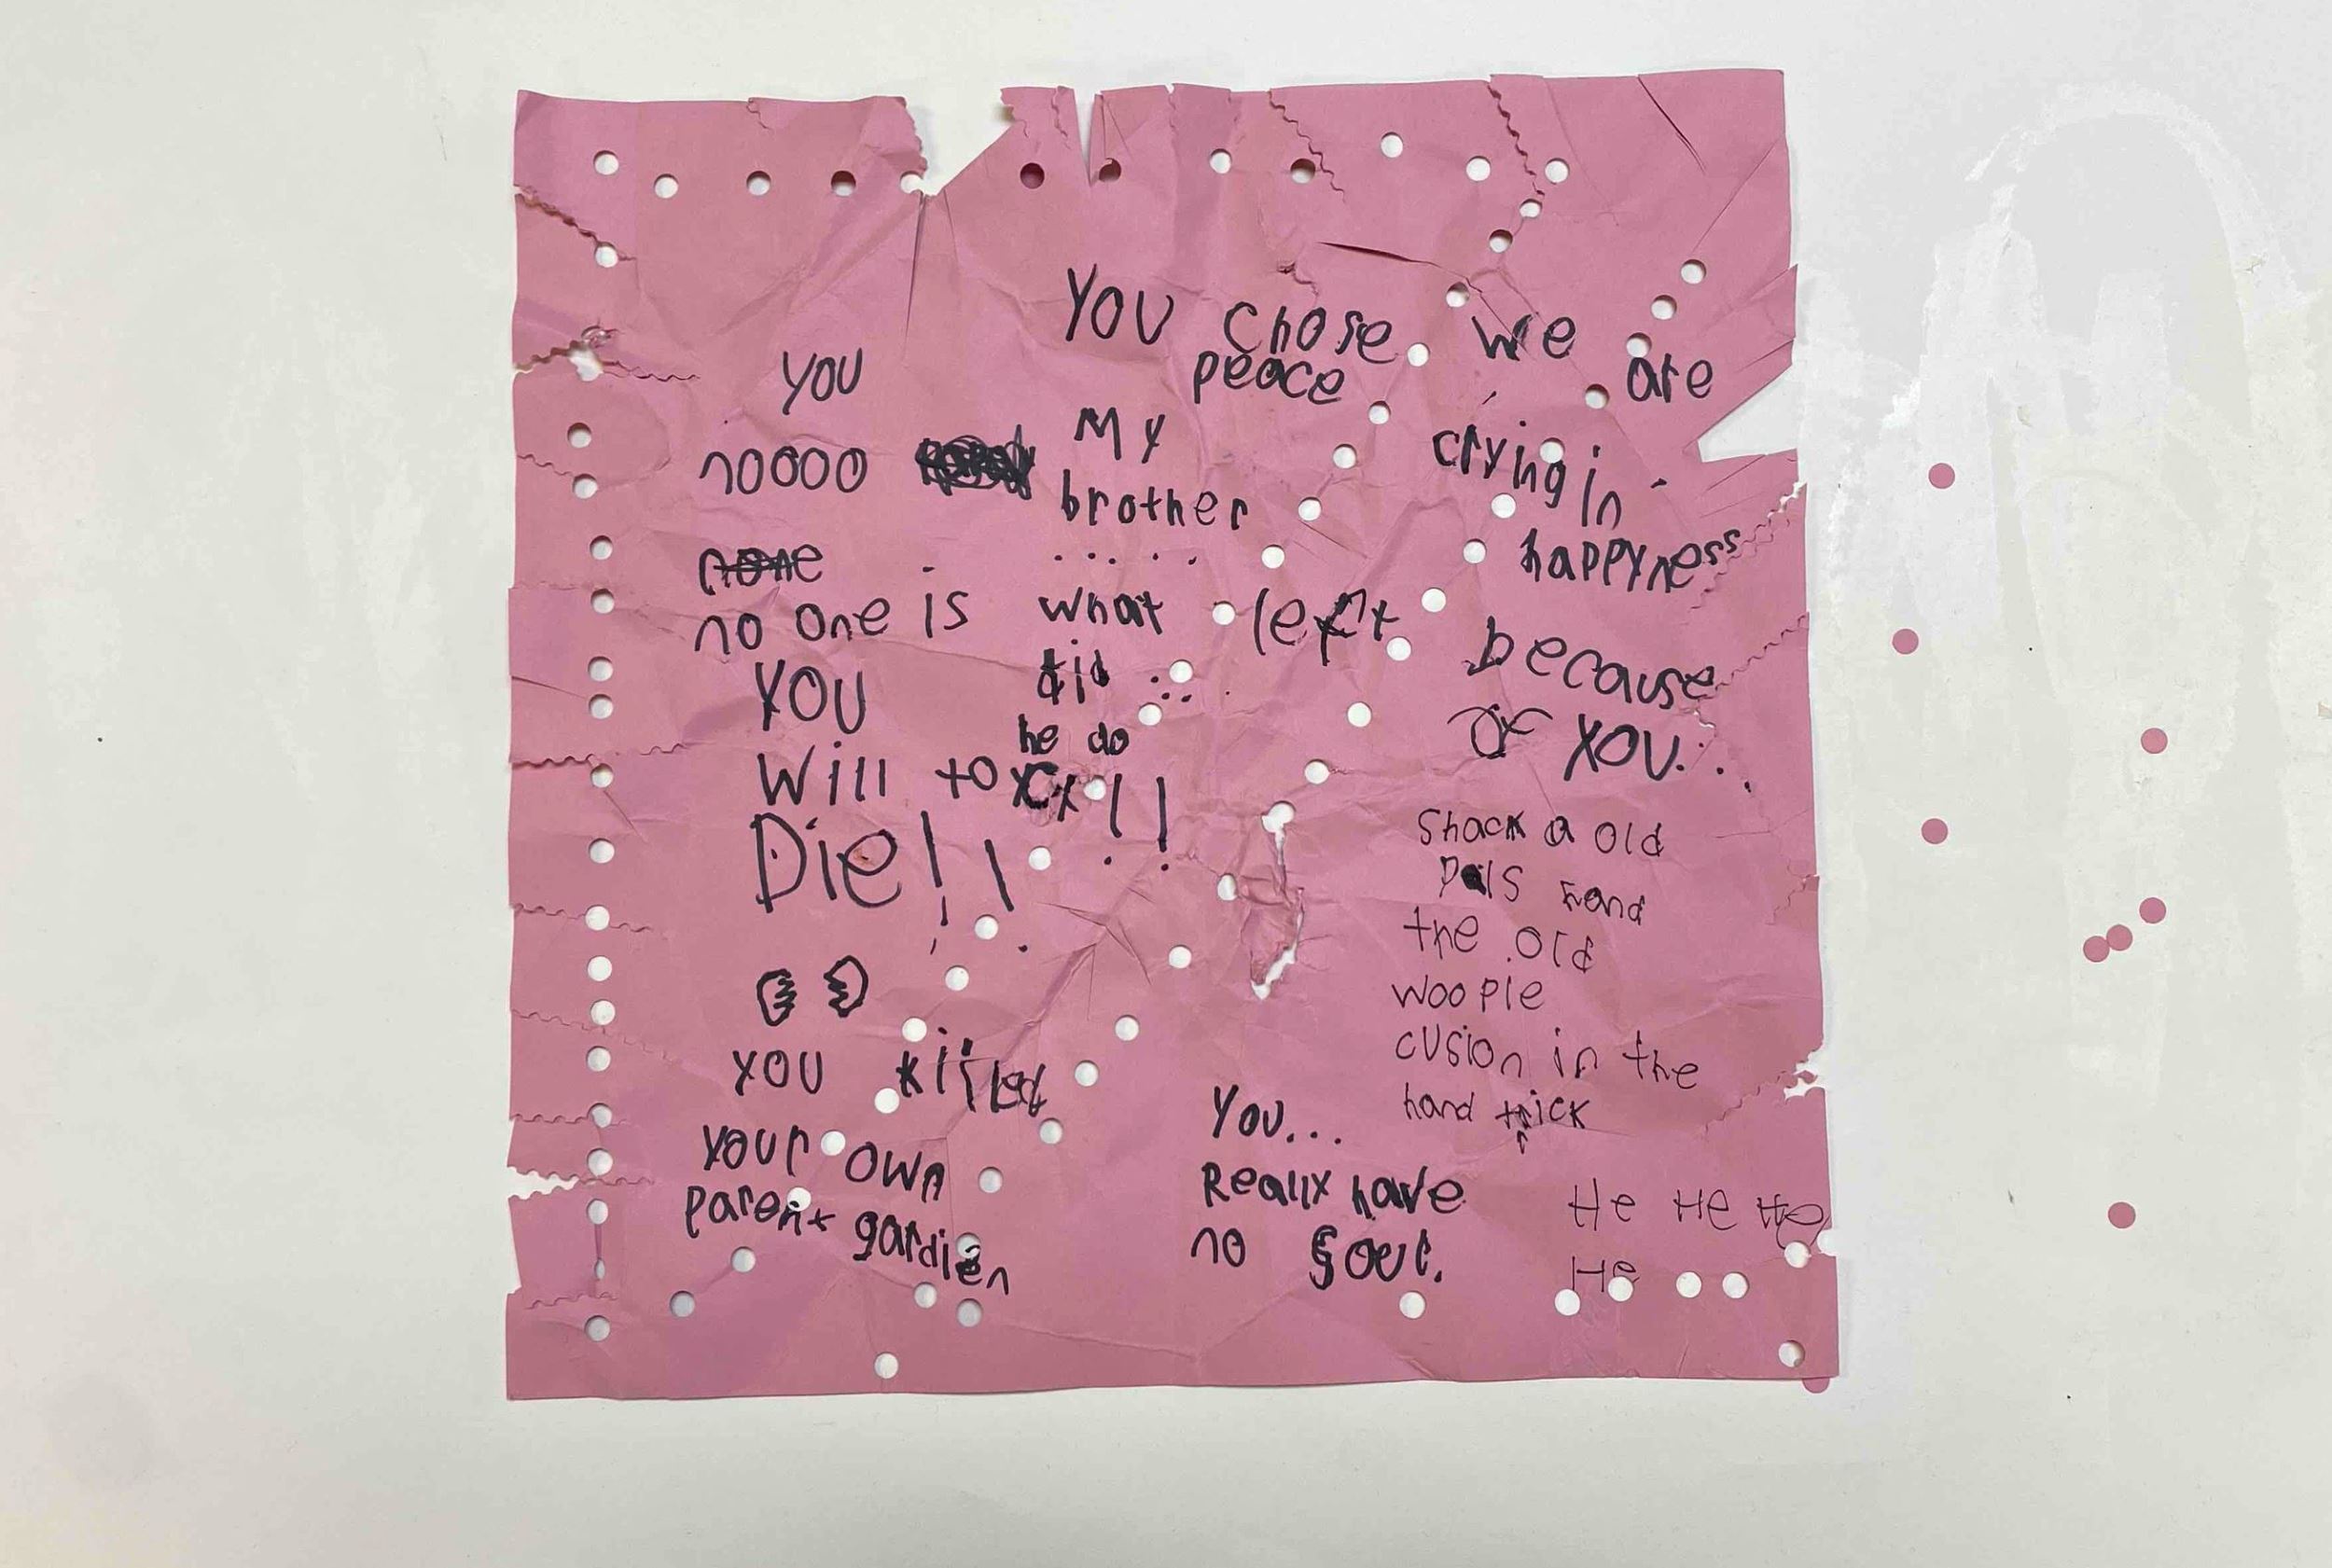 YOU
n0000
no one is
left
YOU
Will
Die!!
YOU killed
YOUr OWN
Parent gardien
YOU chose
peace
My
brother
.....
what
did
he do
to
!!
we
are
crying in
happyness
because
OF YOU...
Shack a old
Pals hand
the old
woopie
cusion in the
hand trick
You...
Really have
no soul.
He He He
He